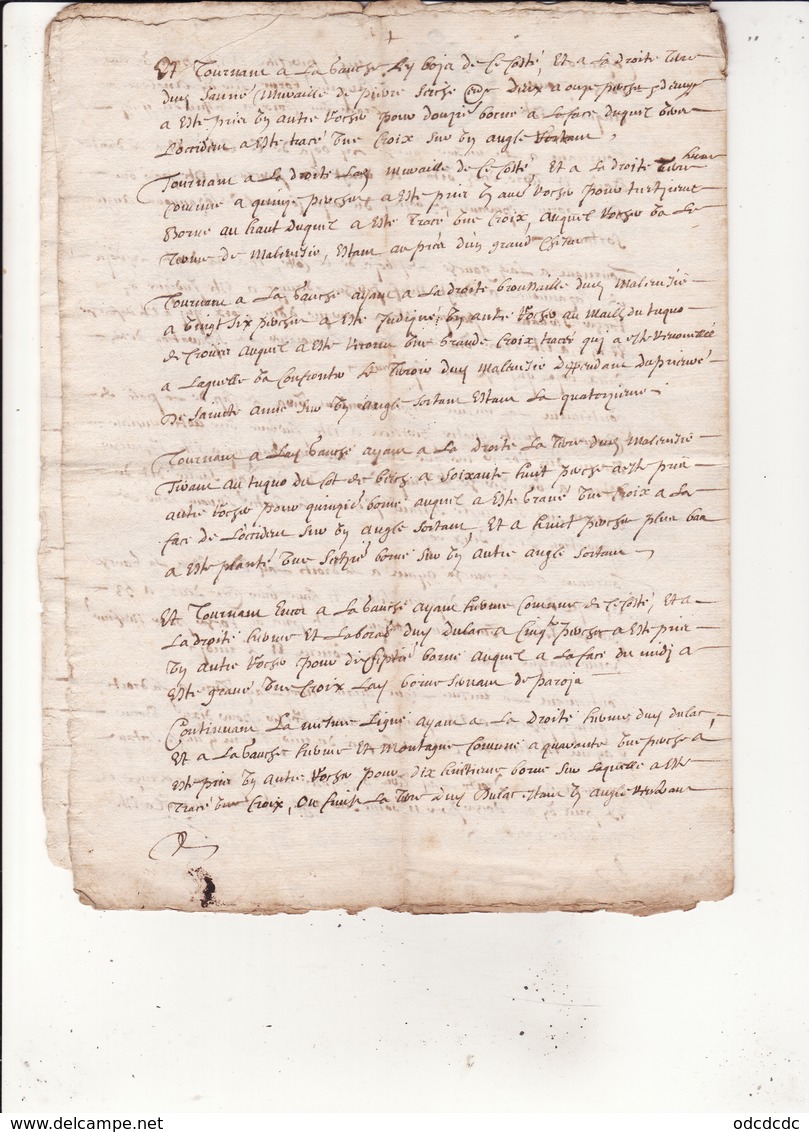 Et Tournant a La gauche Les bois de Ce Costé, Et a La droite terre
du Sr Sanné muraille de pierre seche entre deux a onze perches & demye
a Este pris un autre Rocher pour douzie borne a La face duquel vers
L'occident a este tracé une Croix Sur un angle Sortant,
Tournant a La droite Lad muraille de Ce Costé, Et a La droite herme
Comune a quinze perches a este pris un autre Rocher pour treizieme
Borne au haut duquel a Este Tracé une Croix, auquel Rocher va Le
Terme de Malevisie, Estant au pied d'un grand Chesne
Tournant a La gauche ayant a La droite broussaille dud Malevisie
a vingt six perches a este Indiqué un autre Rocher au du tuquo
de auquel a este recognu une grande Croix tracée qui a este renouvellée
a Laquelle va Confronter Le Terroir dud Malevisie dependant du prieuré
De Saincte Anne Sur un angle Sortant Estant La quatorzieme.
Tournant a Lad gauche ayant a La droite La terre dud Malevisie
Tirant au tuquo du a soixante huit perches a este pris
autre Rocher pour quinzie borne auquel a este gravé une Croix a La
face de L'occident Sur un angle Sortant Et a huict perches plus bas
a Este planté une Seizie borne Sur un autre angle Sortant
Et Tournant Encor a La gauche ayant herme Comune de Ce Costé, Et a
La droite herme Et Laborat dud dulac a Cinq perches a este pris
un autre Rocher pour dixseptie borne auquel a La face du midj a
Este gravé une Croix Lad borne Servant de paroja
Continuant La mesme Ligne ayant a La droite herme dud dulac,
Et a La gauche herme Et Montagne Comune a quarante une perches a
Este pris un autre Rocher pour dix huitieme borne Sur Laquelle a Este
Tracé une Croix, Ou finit La terre dud Dulac Estant un angle
odcdcdc